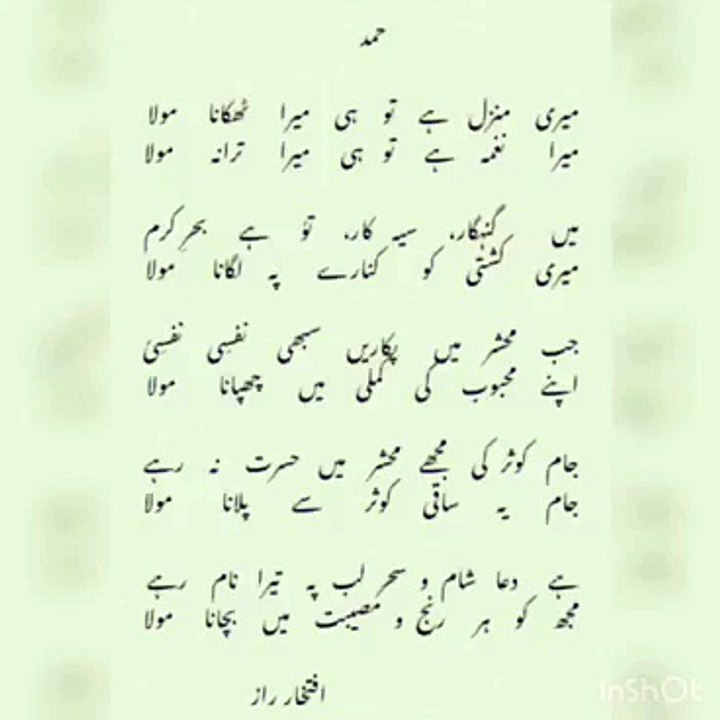 حمد
میری منزل ہے تو ہی میرا ٹھکانا مولا
میرا نغمہ ہے تو ہی میرا ترانہ مولا
میں گنہگار، سیہ کار، تُو ہے بحرِ کرم
میری کشتی کو کنارے پہ لگانا مولا
جب محشر میں پکاریں سبھی نفسِی نفسِی
اپنے محبوب کی کملی میں چھپانا مولا
جام کوثر کی مجھے محشر میں حسرت نہ رہے
جام یہ ساقی کوثر سے پلانا مولا
ہے دعا شام و سحر لب پہ تیرا نام رہے
مجھ کو ہر رنج و مصیبت میں بچانا مولا
افتخار راز
InShOt